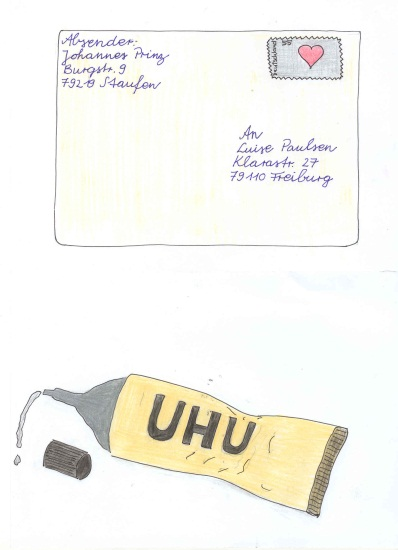 Absender:
Johannes Prinz
Burgstr. 9
79219 Staufen
Deutschland 55
An
Luise Paulsen
Klarastr. 27
79110 Freiburg
UHU